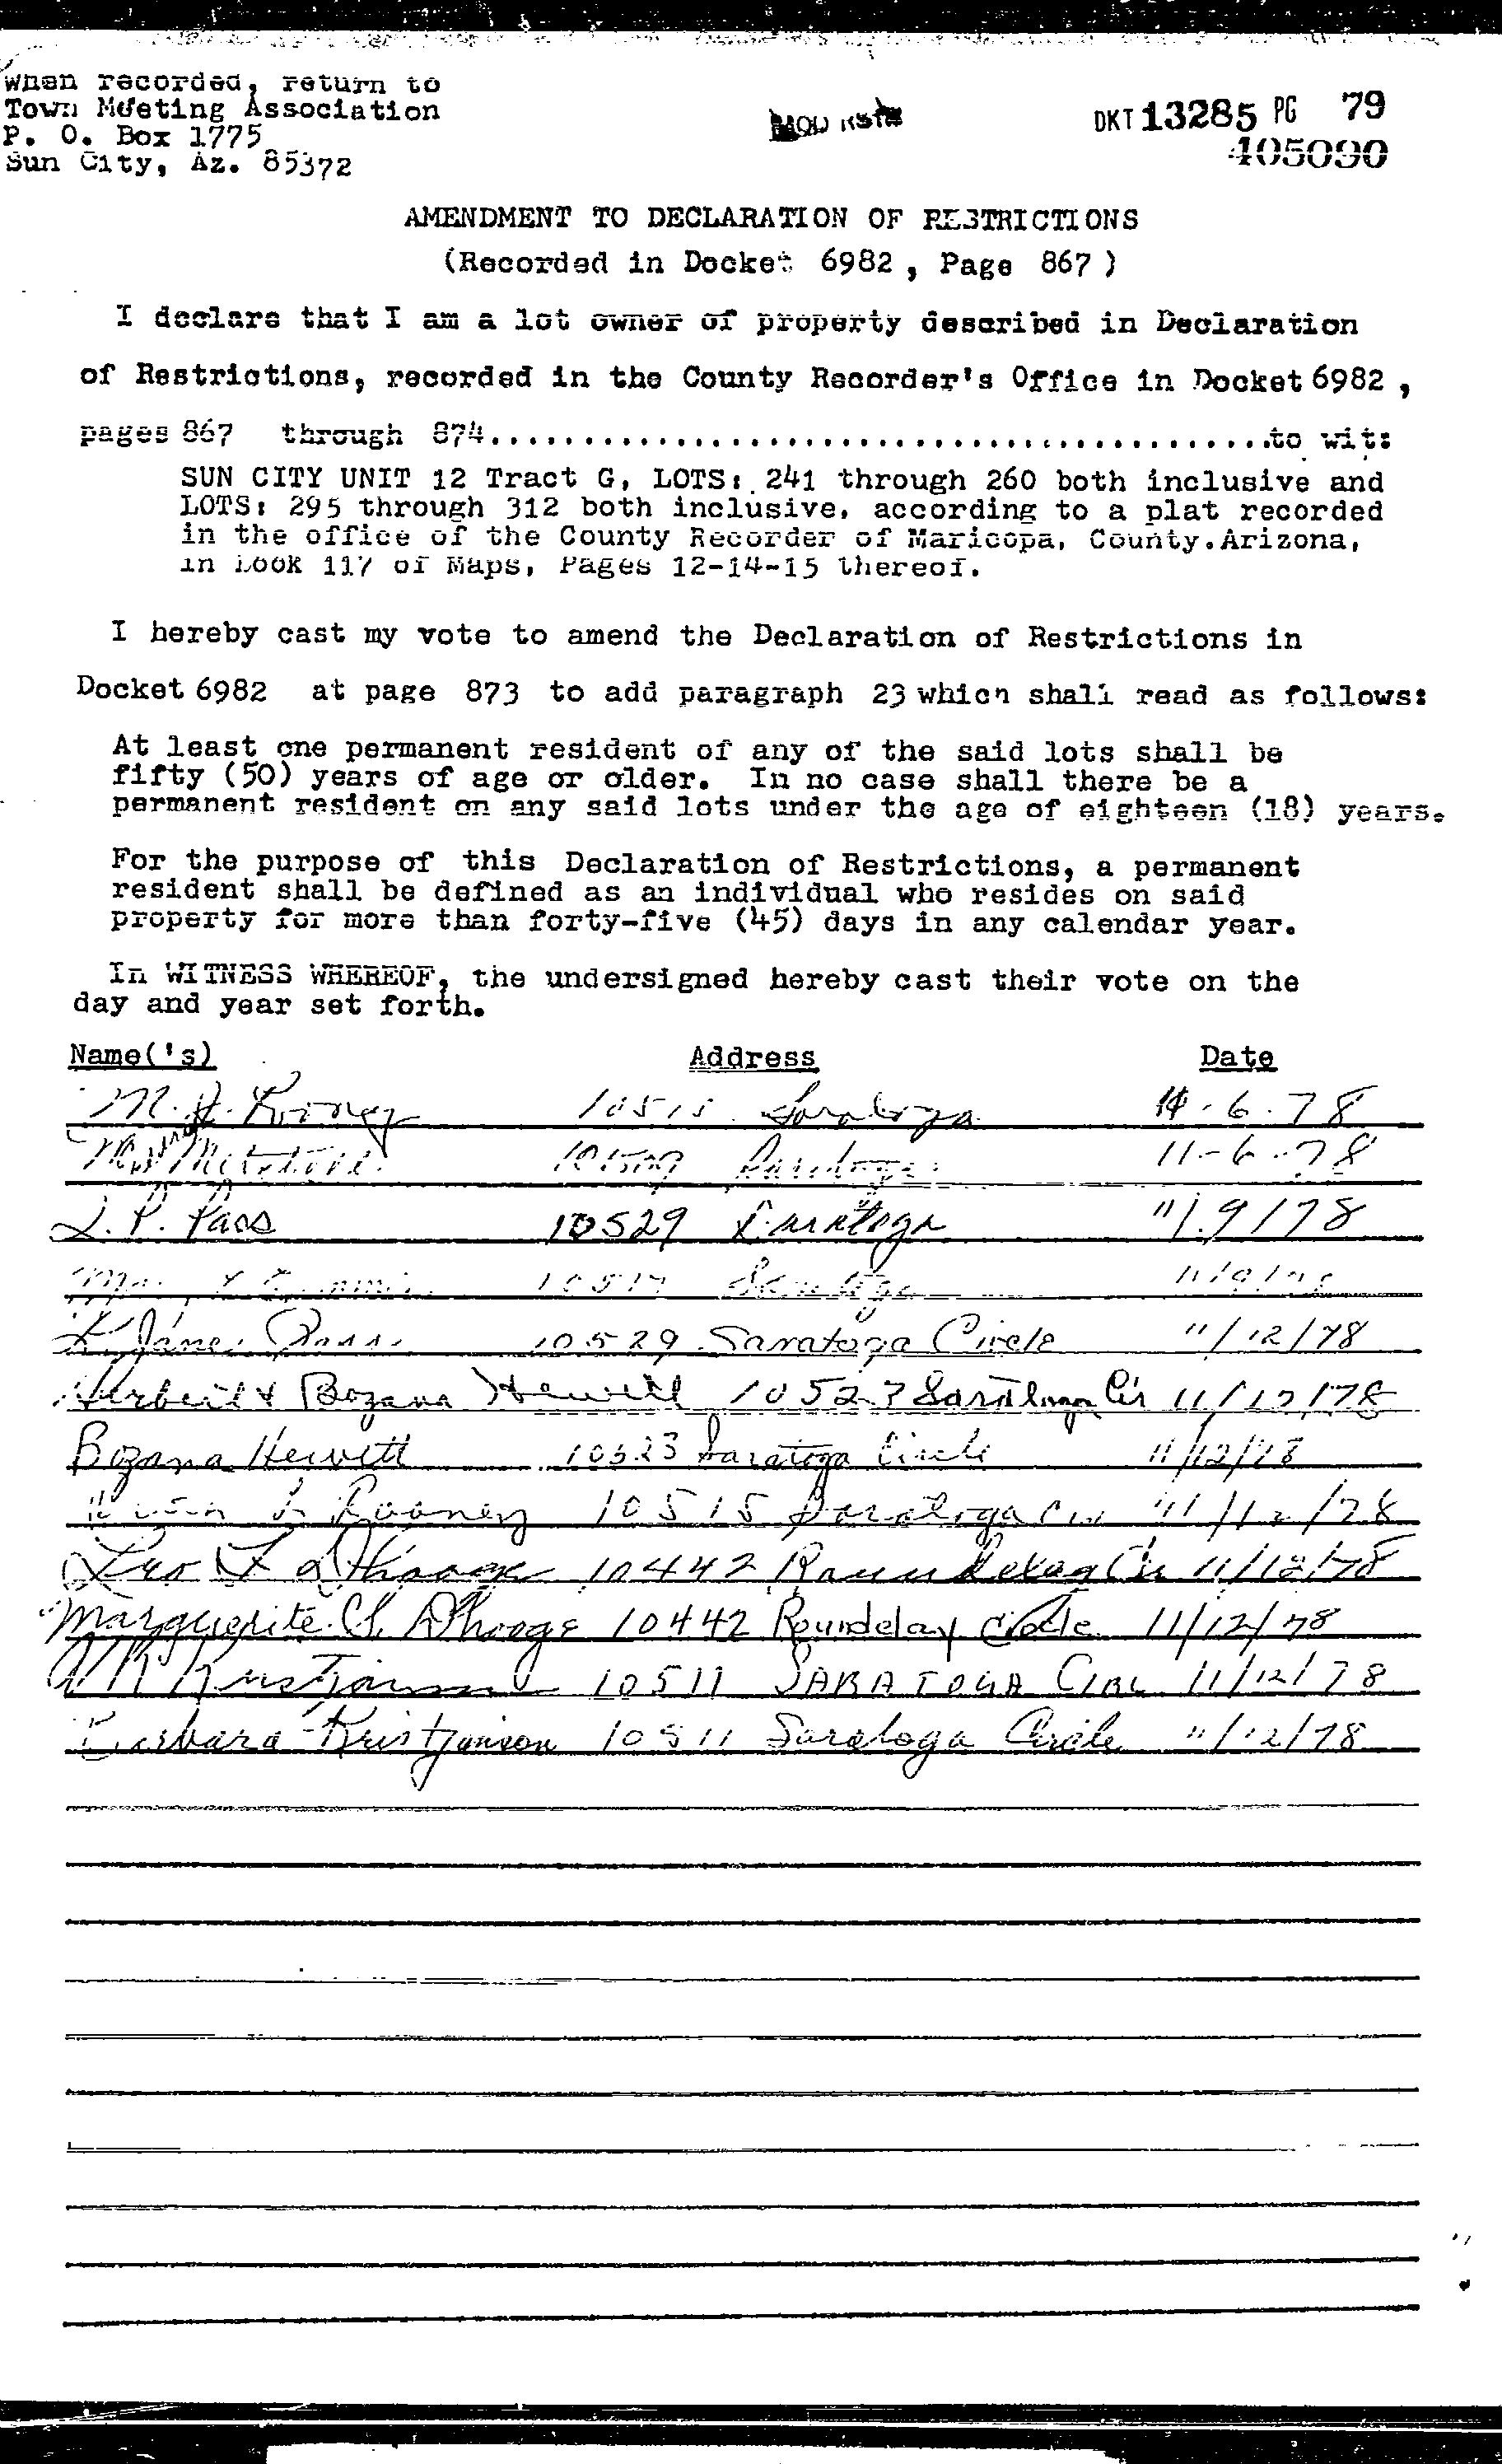 When recorded, return to
Town Meeting Association
P. O. Box 1775
Sun City, Az. 85372
MOD RSTR
DKT 13285 PG 79
405090
AMENDMENT TO DECLARATION OF RESTRICTIONS
(Recorded in Docket 6982, Page 867)
I declare that I am a lot owner of property described in Declaration
of Restrictions, recorded in the County Recorder's Office in Docket 6982,
pages 867 through 874..........................................to wit:
SUN CITY UNIT 12 Tract G, LOTS: 241 through 260 both inclusive and
LOTS: 295 through 312 both inclusive, according to a plat recorded
in the office of the County Recorder of Maricopa, County.Arizona,
in Book 117 of Maps, Pages 12-14-15 thereof.
I hereby cast my vote to amend the Declaration of Restrictions in
Docket 6982 at page 873 to add paragraph 23 which shall read as follows:
At least one permanent resident of any of the said lots shall be
fifty (50) years of age or older. In no case shall there be a
permanent resident on any said lots under the age of eighteen (18) years.
For the purpose of this Declaration of Restrictions, a permanent
resident shall be defined as an individual who resides on said
property for more than forty-five (45) days in any calendar year.
In WITNESS WHEREOF, the undersigned hereby cast their vote on the
day and year set forth.
Name('s) Address Date
M. 10515 Saratoga 11-6-78
10509 Saratoga 11-6-78
L. P. Pass 10529 Saratoga 11/9/78
Saratoga
K. Jane Pass 10529 Saratoga Circle 11/12/78
Herbert & Bozana Hewitt 10523 Saratoga Cir 11/12/78
Bozana Hewitt 10523 Saratoga Circle 11/12/78
Rooney 10515 Saratoga Cir 11/12/78
Leo F. DHooge 10442 Roundelay Cir 11/12/78
Marguerite Ch. DHooge 10442 Roundelay Circle 11/12/78
Kristjanson 10511 SARATOGA CIRC 11/12/78
Barbara Kristjanson 10511 Saratoga Circle 11/12/78